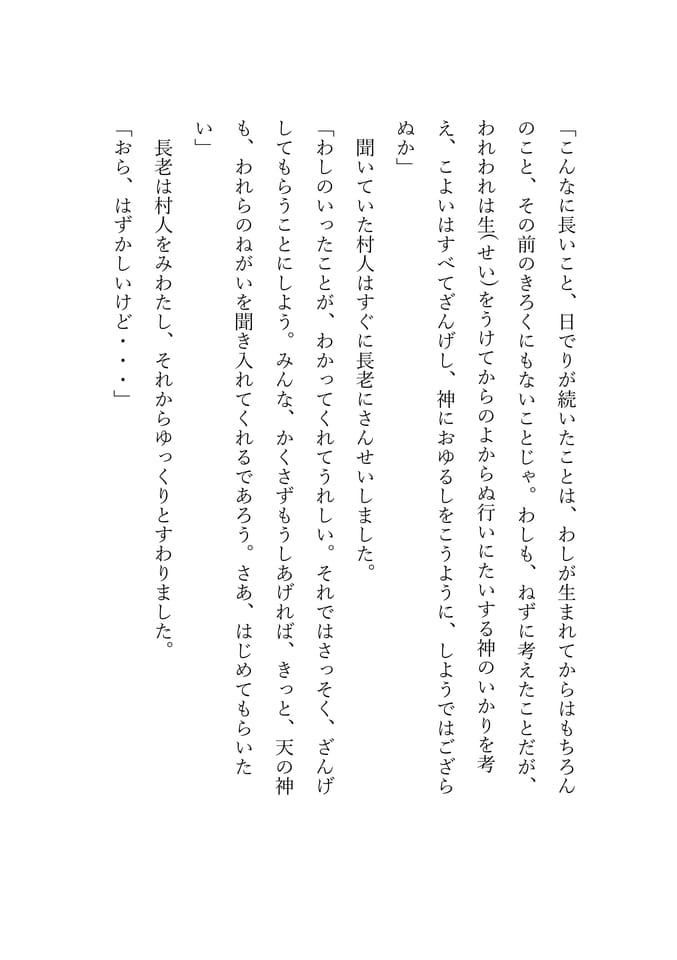 「こんなに長いこと、日でりが続いたことは、わしが生まれてからはもちろん
のこと、その前のきろくにもないことじゃ。わしも、ねずに考えたことだが、
われわれは生(せい)をうけてからのよからぬ行いにたいする神のいかりを考
え、こよいはすべてざんげし、神におゆるしをこうように、しようではござら
ぬか」
　聞いていた村人はすぐに長老にさんせいしました。
「わしのいったことが、わかってくれてうれしい。それではさっそく、ざんげ
してもらうことにしよう。みんな、かくさずもうしあげれば、きっと、天の神
も、われらのねがいを聞き入れてくれるであろう。さあ、はじめてもらいた
い」
　長老は村人をみわたし、それからゆっくりとすわりました。
「おら、はずかしいけど・・・」